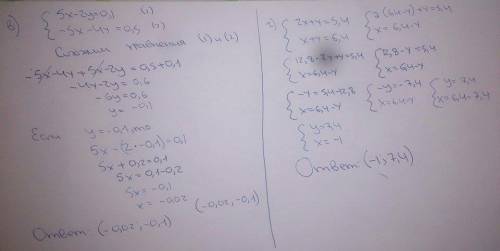 в) { 5x-2y=0,1 (1)
-5x-4y=0,5 (2)
Сложим уравнения (1) и (2)
-5x-4y+5x-2y=0,5+0,1
-4y-2y=0,6
-6y=0,6
y=-0,1
Если y=-0,1, то
5x-(2·-0,1)=0,1
5x+0,2=0,1
5x=0,1-0,2
5x=-0,1
x=-0,02 (-0,02, -0,1)
Ответ (-0,02, -0,1)
г) { 2x+y=5,4 { 2(6,4-y)+y=5,4
x+y=6,4 x=6,4-y
{ 12,8-2y+y=5,4 { 12,8-y=5,4
x=6,4-y x=6,4-y
{ -y=5,4-12,8 { -y=-7,4 { y=7,4
x=6,4-y x=6,4-y x=6,4-7,4
{ y=7,4
x=-1
Ответ (-1, 7,4)